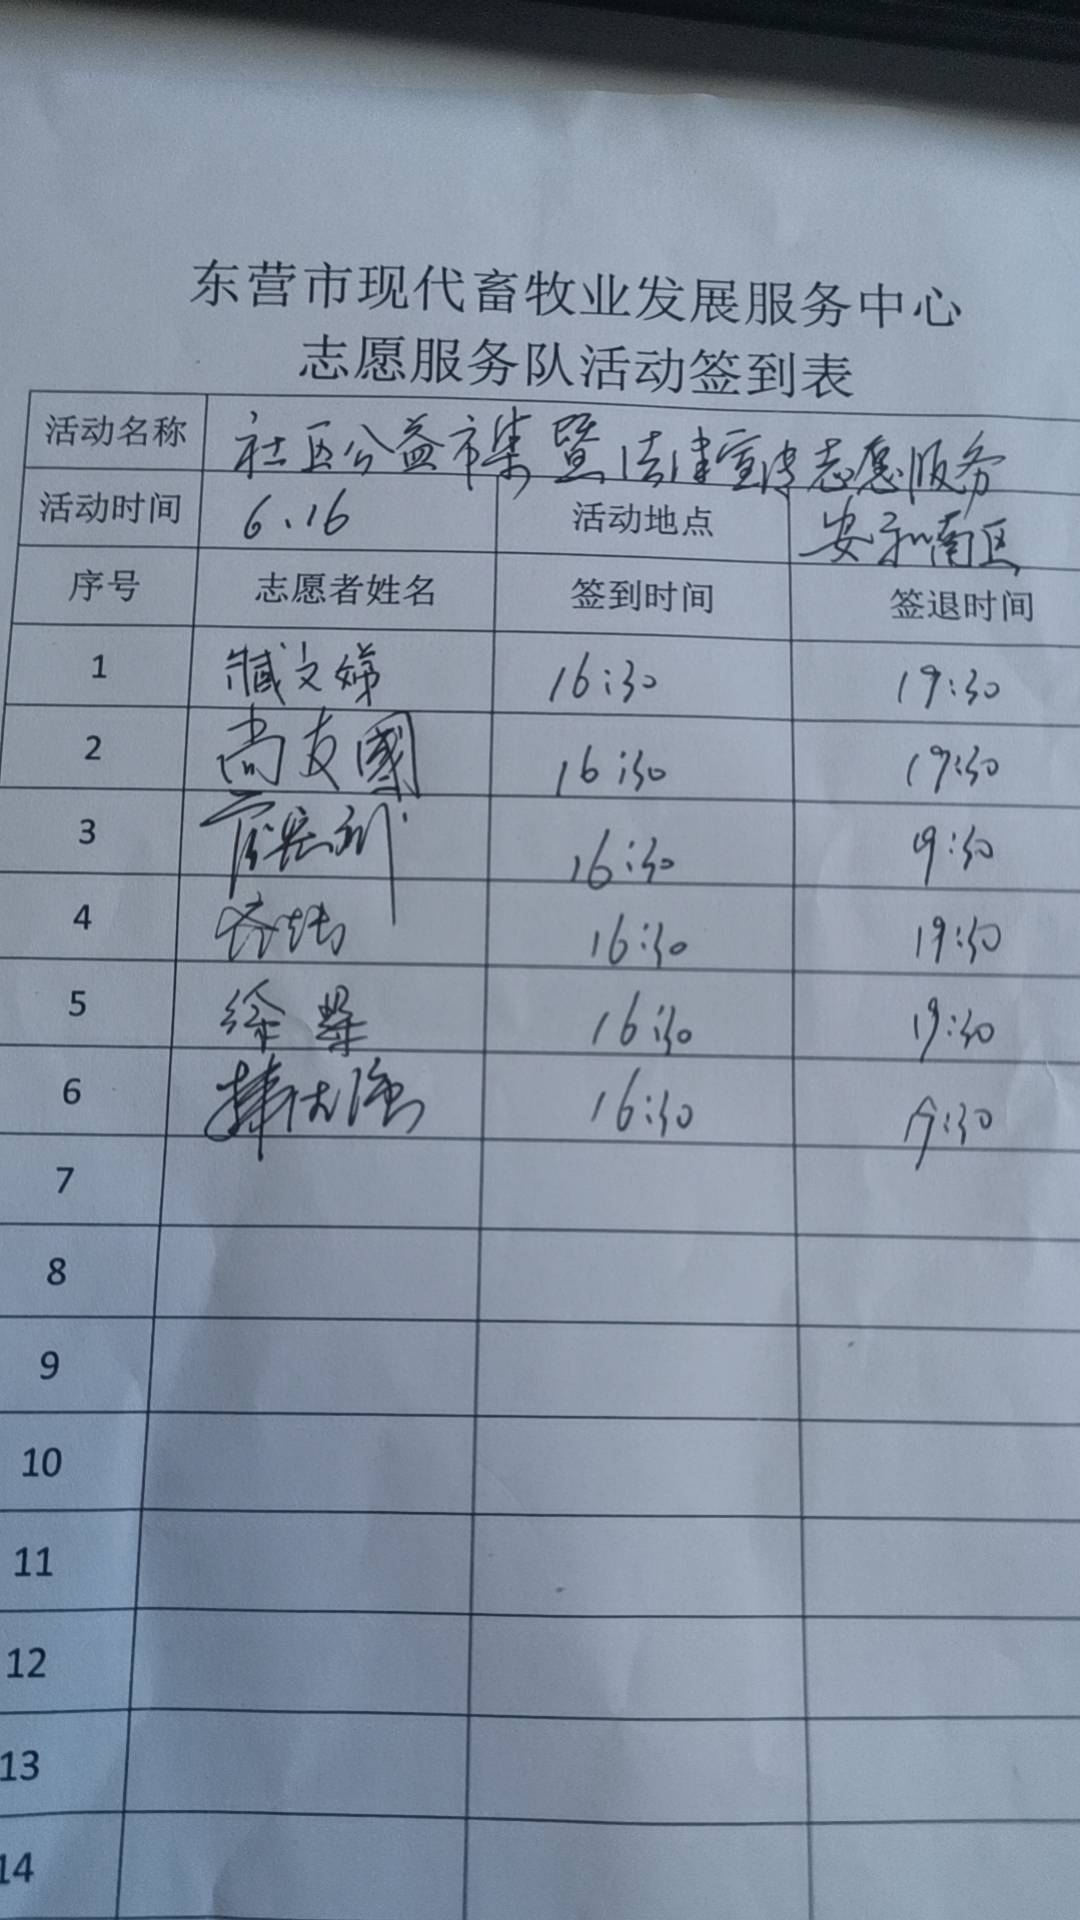 东营市现代畜牧业发展服务中心
志愿服务队活动签到表
活动名称 社区公益市集暨法律宣传志愿服务
活动时间 6.16 活动地点 安和南区
序号 志愿者姓名 签到时间 签退时间
1 臧文娣 16:30 19:30
2 尚友國 16:30 19:30
3 16:30 19:30
4 16:30 19:30
5 徐 16:30 19:30
6 16:30 19:30
7
8
9
10
11
12
13
14